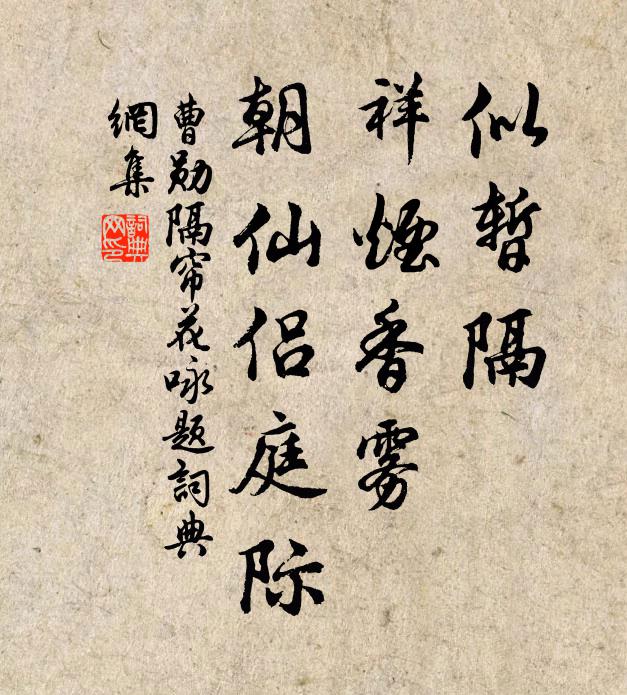 似暂隔
祥烟香雾
朝仙侣庭际
曹勋隔帘花咏题詞典
網集
詞典
网印